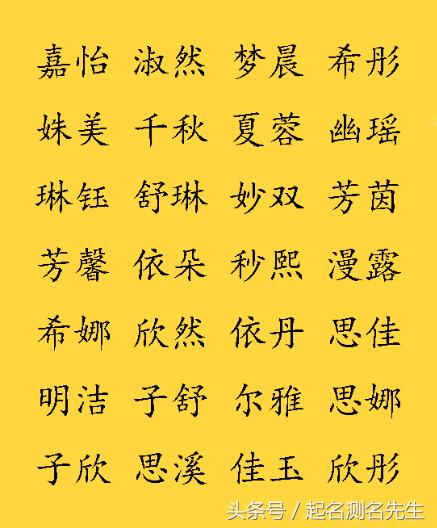 嘉怡 淑然 梦晨 希彤
姝美 千秋 夏蓉 幽瑶
琳钰 舒琳 妙双 芳茵
芳馨 依朵 秒熙 漫露
希娜 欣然 依丹 思佳
明洁 子舒 尔雅 思娜
子欣 思溪 佳玉 欣彤
头条号／起名测名先生